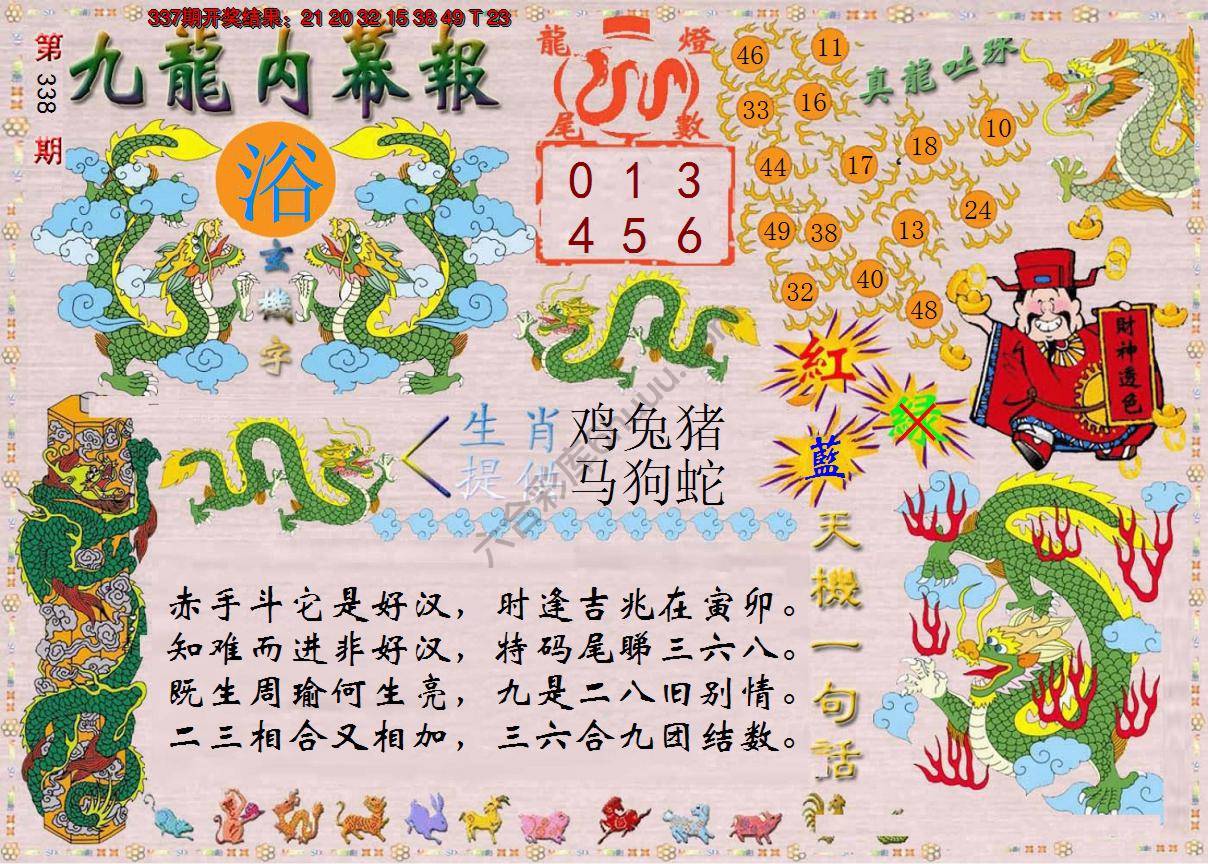 337期开奖结果：21 20 32 15 38 49 T 23
第338期
九龍内幕報
浴
玄機字
龍燈
尾數
0 1 3
4 5 6
真龍吐珠
46
11
33
16
18
10
44
17
24
49
38
13
40
32
48
財神透色
紅
绿
藍
生肖
提供
鸡兔猪
马狗蛇
天機一句話
赤手斗它是好汉，时逢吉兆在寅卯。
知难而进非好汉，特码尾睇三六八。
既生周瑜何生亮，九是二八旧别情。
二三相合又相加，三六合九团结数。